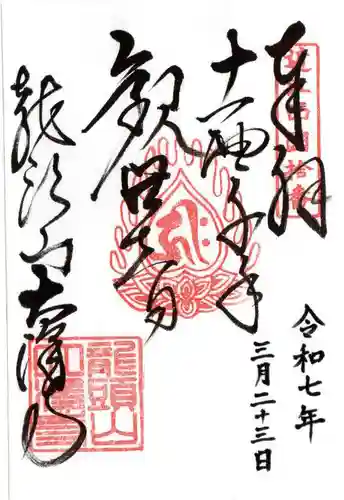 奉拝
令和七年
三月二十三日
十一面千手
観世音
龍頭山大澤寺
龍頭山